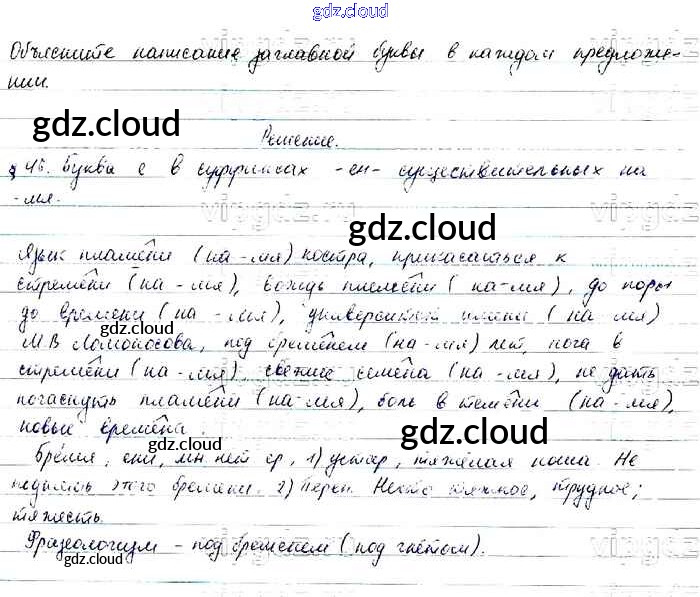 gdz.cloud
Объясните написание заглавной буквы в каждом предложе-
нии.
gdz.cloud
Решение.
§ 46. Буква е в суффиксах -ен- существительных на
-мя.
gdz.cloud
Язык пламени (на -мя) костра, прикасаться к
стремени (на -мя), вождь племени (на -мя), до поры
до времени (на -мя), университет имени (на -мя)
gdz.cloud
М.В Ломоносова, под бременем (на -мя) лет, нога в
стремени (на -мя), свежие семена (на -мя), не дать
погаснуть пламени (на -мя), боль в темени (на -мя),
новые времена.
gdz.cloud
gdz.cloud
Бремя, ени, мн. нет ср, 1) устар, тяжёлая ноша. Не
подымешь этого бремени. 2) Перен. Нечто тяжкое, трудное;
gdz.cloud
тяжесть.
Фразеологизм – под бременем (под гнётом).
gdz.cloud
gdz.cloud